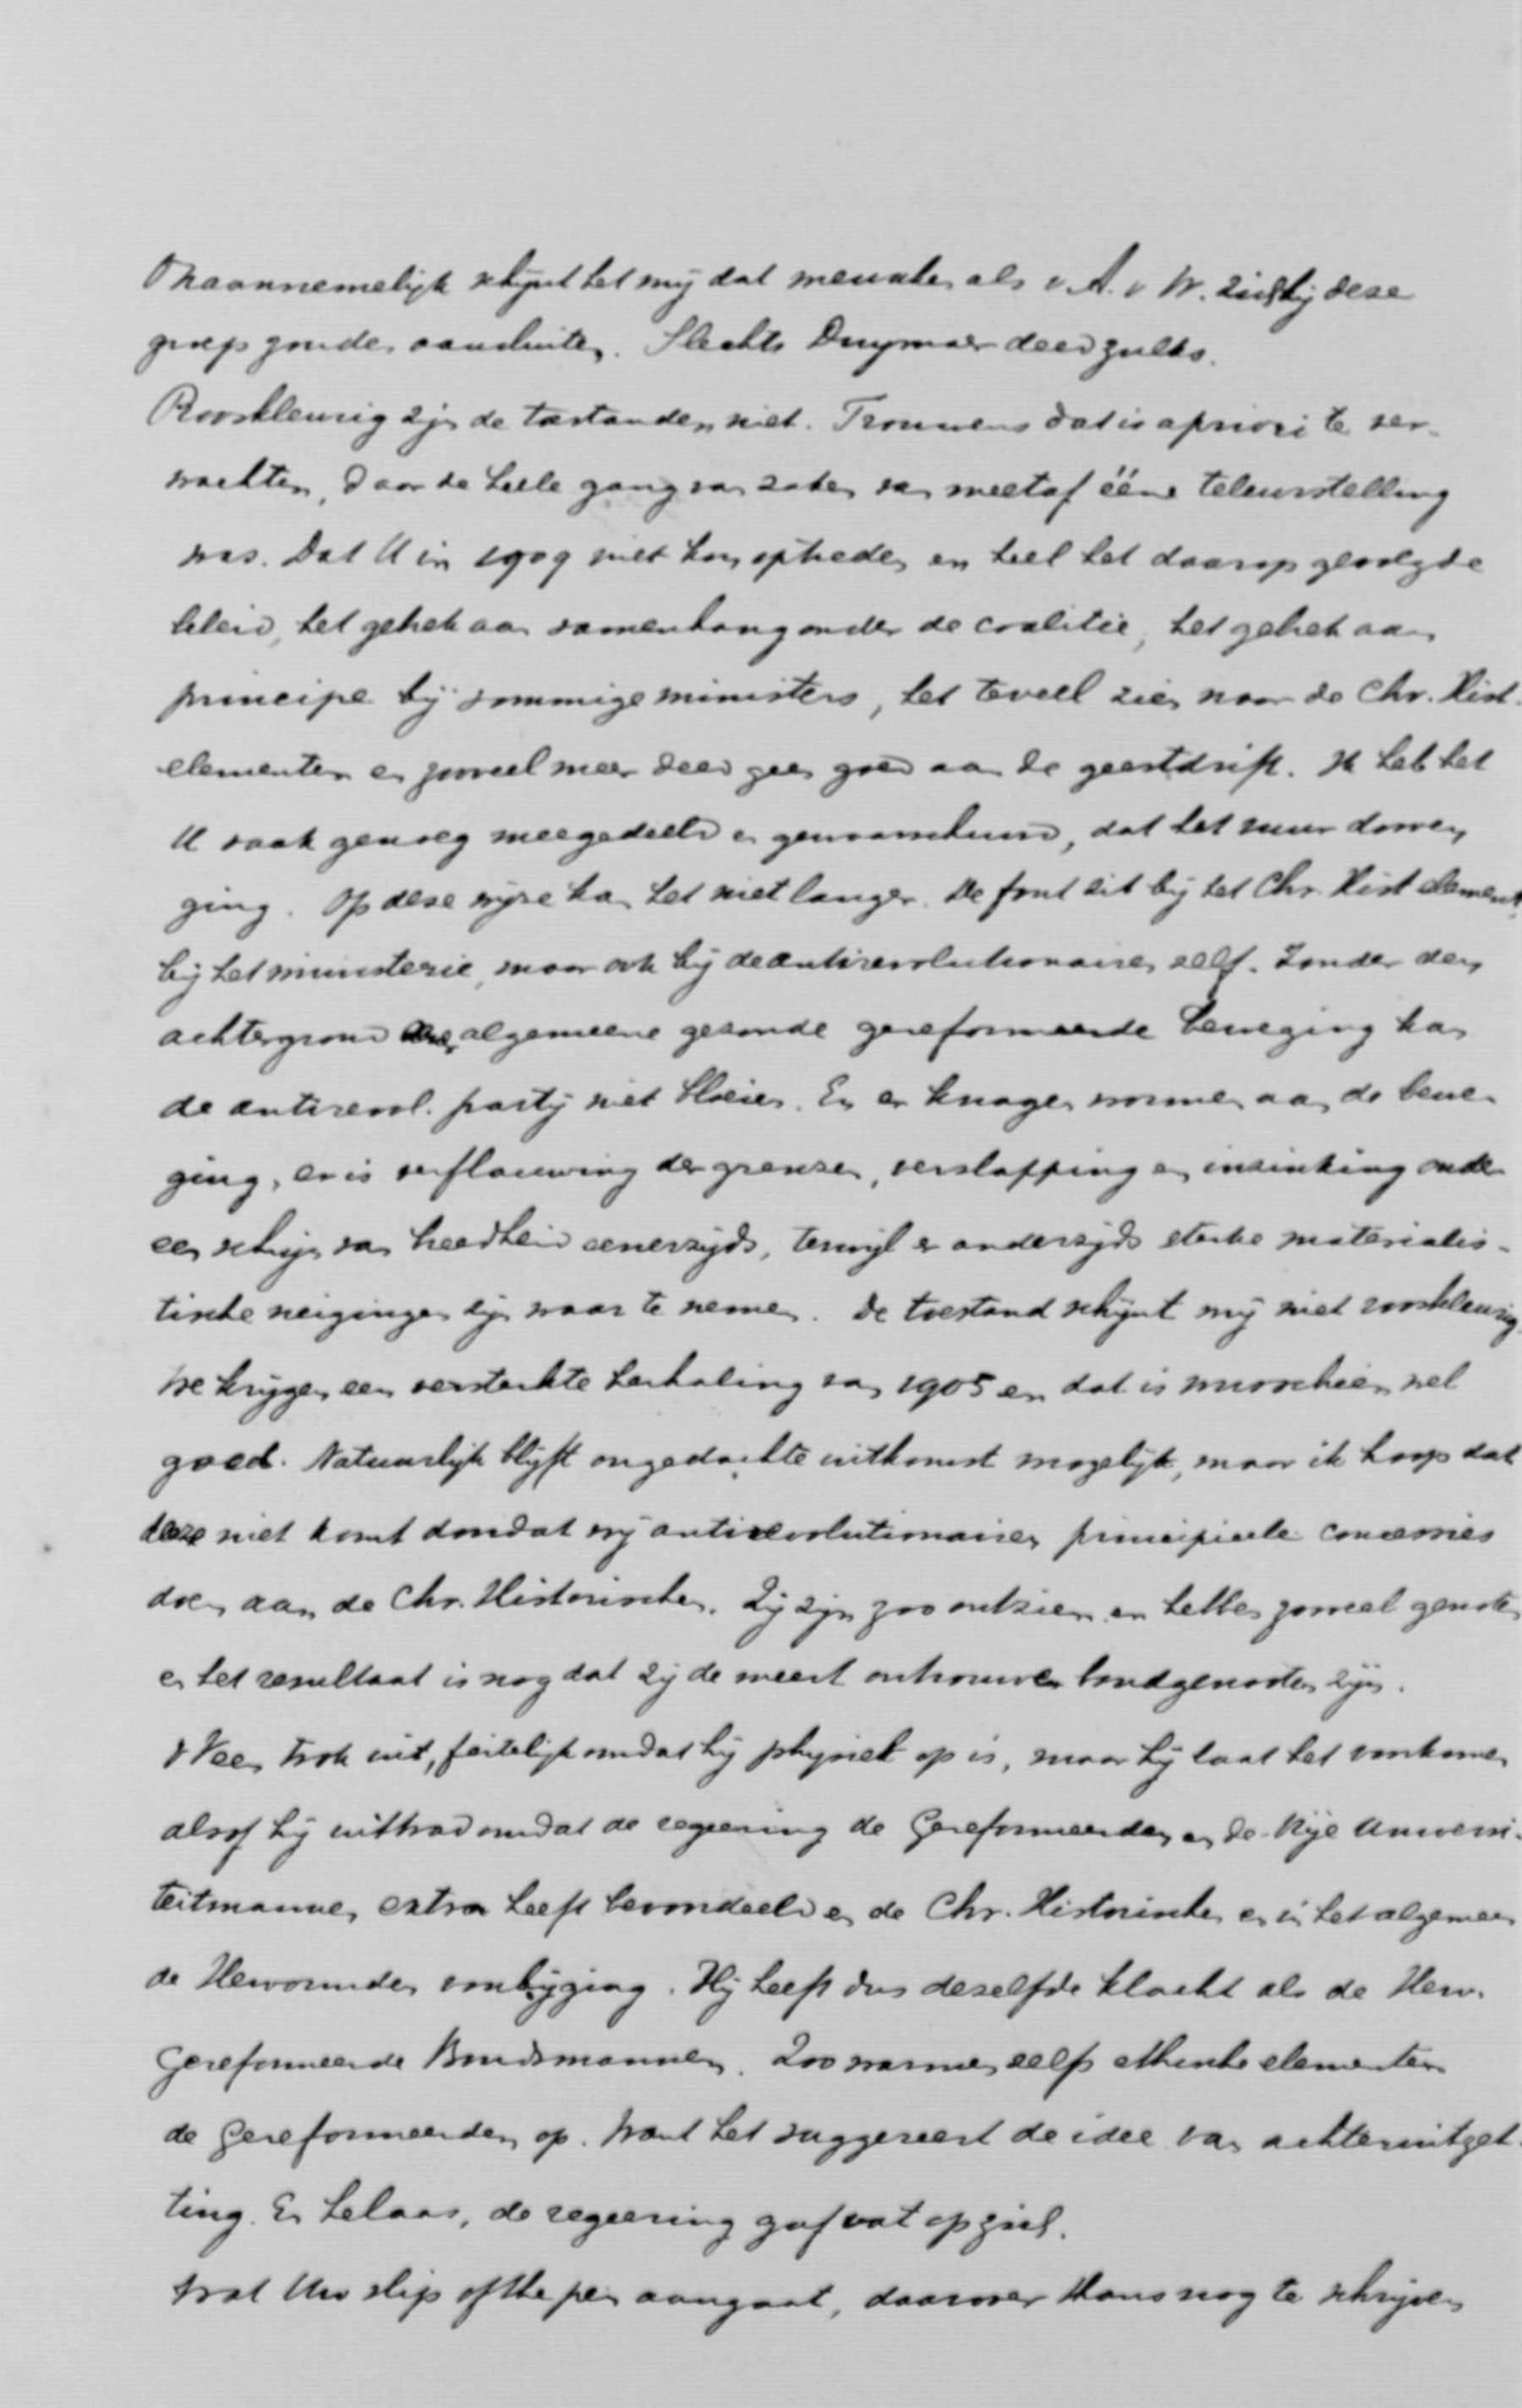 Onaannemelijk schijnt het mij dat menschen als v. A. v W. zich bij deze
groep zouden aansluiten. Slechts Duymaer deed zulks.
Rooskleurig zijn de toestanden niet. Trouwens dat is apriori te ver-
wachten, daar de heele gang van zaken van meetaf ééne teleurstelling
was. Dat U in 1909 niet kon optreden en heel het daarop gevolgde
beleid, het gebrek aan samenhang onder de coalitie, het gebrek aan
principe bij sommige ministers, het teveel zien naar de Chr. Hist.
elementen en zooveel meer deed geen goed aan de geestdrift. Ik heb het
U vaak genoeg meegedeeld en gewaarschuwd, dat het
ging. Op deze wijze kan het niet langer. De fout zit bij het Chr. Hist element,
bij het ministerie, maar ook bij de antirevolutionairen zelf. Zonder den
achtergrond eener algemeene gezonde gereformeerde beweging kan
de antirevol. partij niet bloeien. En er knagen wormen aan de bewe-
ging, er is verflauwing der grenzen, verslapping en inzinking onder
een schijn van breedheid eenerzijds, terwijl er anderzijds sterke materialis-
tische neigingen zijn waar te nemen. De toestand schijnt mij niet rooskleurig.
We krijgen een versterkte herhaling van 1905 en dat is misschien wel
goed. Natuurlijk blijft ongedachte uitkomst mogelijk, maar ik hoop dat
deze niet komt doordat wij antirevolutionairen principieele concessies
doen aan de Chr. Historischen. Zij zijn zoo ontzien en hebben zooveel genoten
en het resultaat is nog dat zij de meest ontrouwe bondgenooten zijn.
v Veen trok uit, feitelijk omdat hij physiek op is, maar hij laat het voorkomen
alsof hij uittrad omdat de regeering de Gereformeerden en de Vrije Universi-
teitmannen extra heeft bevoordeeld en de Chr. Historischen en in het algemeen
de Hervormden voorbijging. Hij heeft dus dezelfde klacht als de Herv.
Gereformeerde Bondsmannen. Zoo warmen zelfs ethische elementen
de Gereformeerden op. Want het suggereert de idee van achteruitzet-
ting. En helaas, de regeering gaf vat op zich.
Wat Uw slip of the pen aangaat, daarover thans nog te schrijven